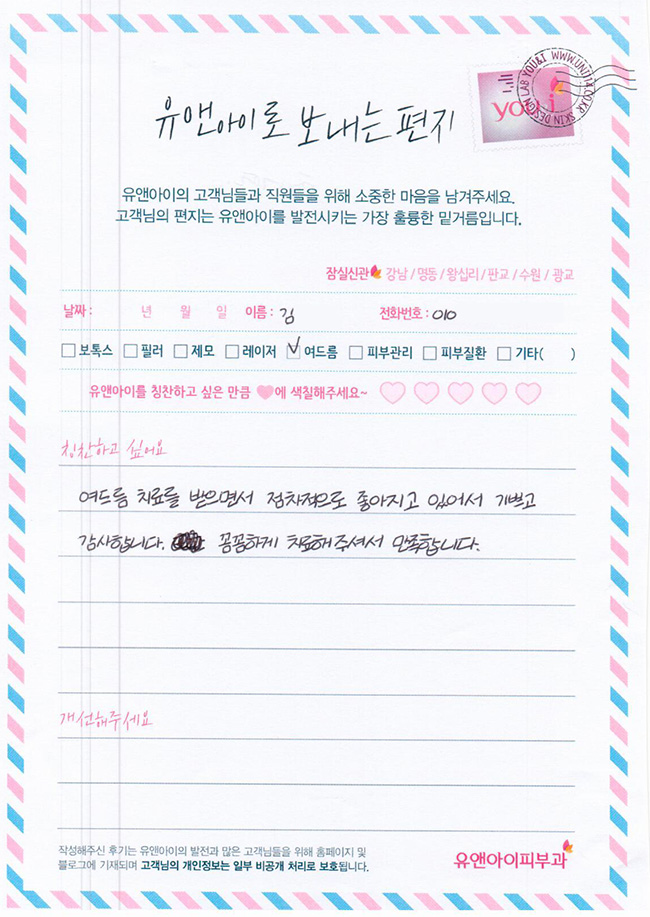 유앤아이로 보내는 편지
you i
SKIN DESIGN LAB YOU&I WWW.UNI114.CO.KR
유앤아이의 고객님들과 직원들을 위해 소중한 마음을 남겨주세요.
고객님의 편지는 유앤아이를 발전시키는 가장 훌륭한 밑거름입니다.
잠실신관 강남 / 명동 / 왕십리 / 판교 / 수원 / 광교
날짜 : 년 월 일 이름 : 김 전화번호 : 010
보톡스 필러 제모 레이저 여드름 피부관리 피부질환 기타( )
유앤아이를 칭찬하고 싶은 만큼 에 색칠해주세요~
칭찬하고 싶어요
여드름 치료를 받으면서 점차적으로 좋아지고 있어서 기쁘고
감사합니다. 꼼꼼하게 치료해주셔서 만족합니다.
개선해주세요
작성해주신 후기는 유앤아이의 발전과 많은 고객님들을 위해 홈페이지 및
블로그에 기재되며 고객님의 개인정보는 일부 비공개 처리로 보호됩니다.
유앤아이피부과